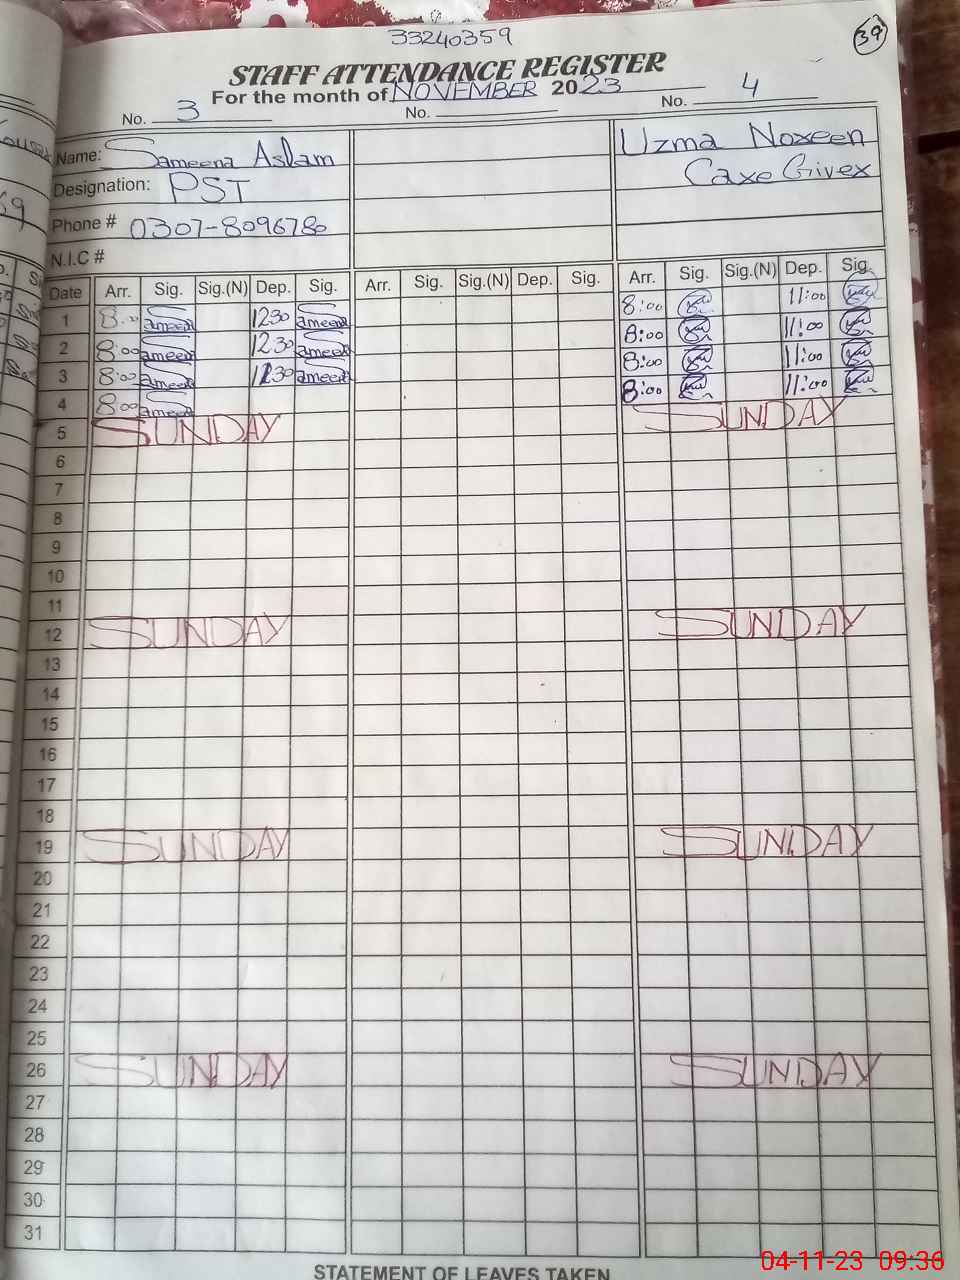 33240359
39
STAFF ATTENDANCE REGISTER
For the month of NOVEMBER 2023
No. 3 No. No. 4
Name: Sameena Aslam Uzma Noreen
Designation: PST Care Giver
Phone # 0307-8096780
N.I.C #
Date Arr. Sig. Sig.(N) Dep. Sig. Arr. Sig. Sig.(N) Dep. Sig. Arr. Sig. Sig.(N) Dep. Sig.
1 8:00 Sameena 1230 Sameena 8:00 11:00
2 8:00 Sameena 1230 Sameena 8:00 11:00
3 8:00 Sameena 1230 Sameena 8:00 11:00
4 8:00 Sameena 8:00 11:00
5 SUNDAY SUNDAY
6
7
8
9
10
11
12 SUNDAY SUNDAY
13
14
15
16
17
18
19 SUNDAY SUNDAY
20
21
22
23
24
25
26 SUNDAY SUNDAY
27
28
29
30
31
STATEMENT OF LEAVES TAKEN
04-11-23 09:36